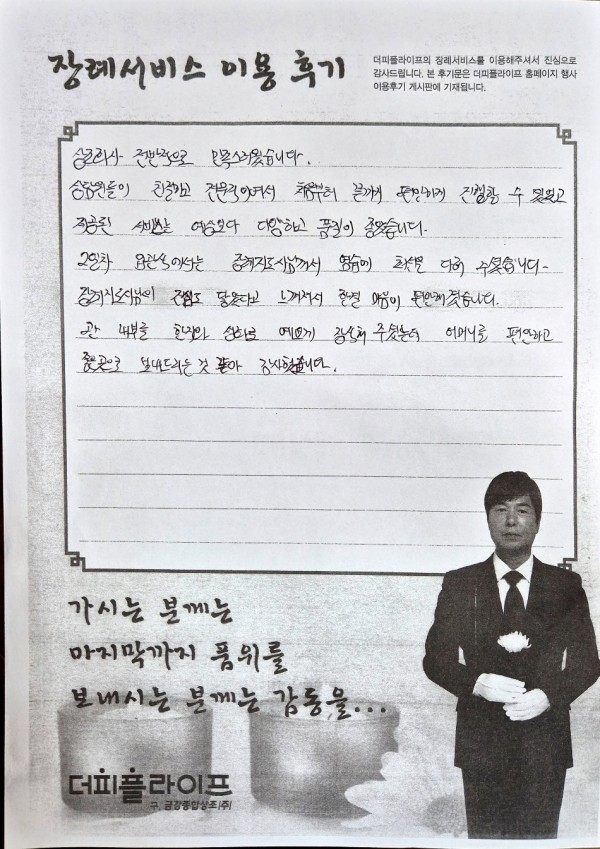 장례서비스 이용 후기
더피플라이프의 장례서비스를 이용해주셔서 진심으로
감사드립니다. 본 후기문은 더피플라이프 홈페이지 행사
이용후기 게시판에 기재됩니다.
상조회사 전반적으로 만족스러웠습니다.
상담원들이 친절하고 전문적이여서 처음부터 끝까지 편안하게 진행할 수 있었고
제공된 서비스는 예상보다 다양하고 품질이 좋았습니다.
2일차 입관식에서는 장례지도사님께서 염습에 최선을 다해 주셨습니다.
장례지도사님의 진심도 닿았다고 느껴져서 한결 마음이 편안해졌습니다.
관 내부를 한지와 생화로 예쁘게 장식해 주셨는데 어머니를 편안하고
좋은곳으로 보내드리는 것 같아 감사했습니다.
가시는 분께는
마지막까지 품위를
보내시는 분께는 감동을...
더피플라이프
구. 금강종합상조(주)